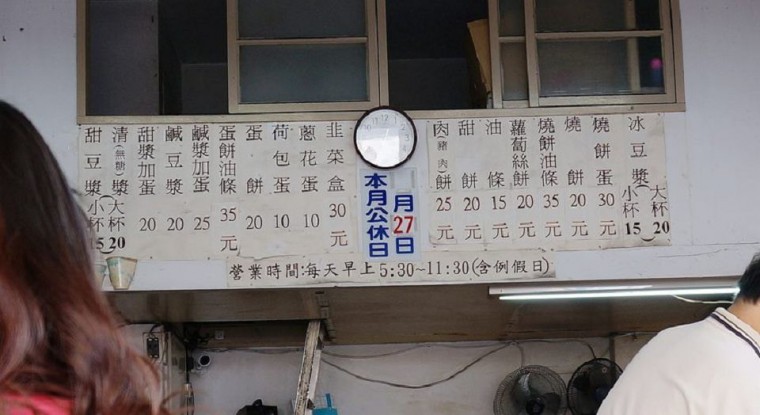 冰豆漿 小杯15 大杯20
燒餅蛋 30元
燒餅 20元
燒餅油條 35元
蘿蔔絲餅 20元
油條 15元
甜餅 20元
肉(豬肉)餅 25元
月27日
本月公休日
韭菜盒 30元
蔥花蛋 10
荷包蛋 10
蛋餅 20
蛋餅油條 35元
鹹漿加蛋 25
鹹豆漿 20
甜漿加蛋 20
清(無糖)漿 大杯20
甜豆漿 小杯15
營業時間:每天早上5:30~11:30(含例假日)